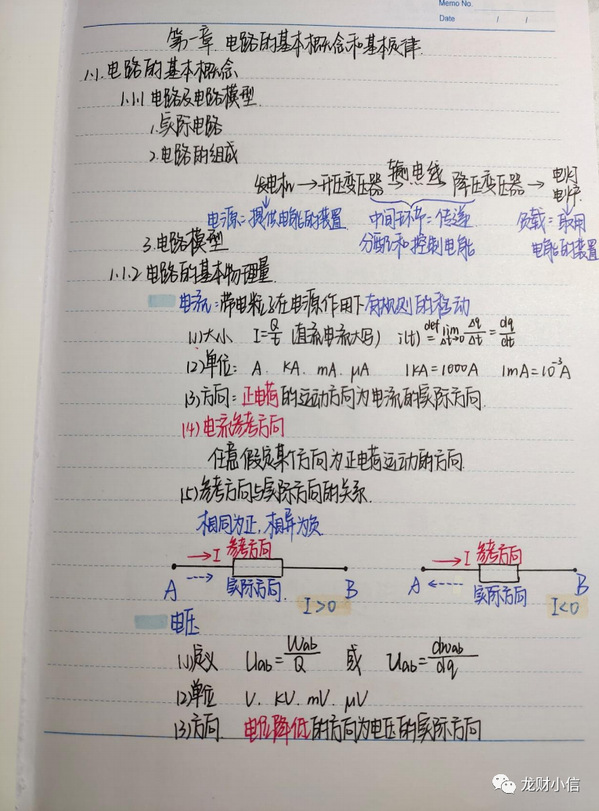 Memo No.
Date / /
第一章 电路的基本概念和基本定律
1.1 电路的基本概念
1.1.1 电路及电路模型
1.实际电路
2.电路的组成
发电机→升压变压器 输电线 降压变压器→电灯 电炉
电源:提供电能的装置 中间环节:传递 分配和控制电能 负载:取用 电能的装置
3.电路模型
1.1.2 电路的基本物理量
电流:带电粒子在电源作用下有规则的移动
(1)大小 I=Q/t (直流电流大写) i(t) def= lim Δt→0 Δq/Δt = dq/dt
(2)单位: A. KA. mA. μA 1KA=1000A 1mA=10⁻³A
(3)方向:正电荷的运动方向为电流的实际方向.
(4)电流参考方向
任意假定某个方向为正电荷运动的方向.
(5)参考方向与实际方向的关系.
相同为正,相异为负
→I 参考方向 →I 参考方向
A 实际方向 B A 实际方向 B
I>0 I<0
电压
(1)定义 Uab=Wab/Q 或 Uab=dwab/dq
(2)单位 V. KV. mV. μV
(3)方向 电位降低的方向为电压的实际方向
龙财小信